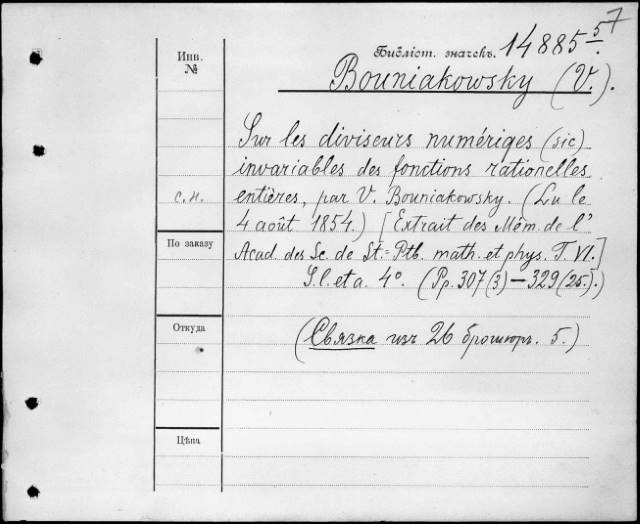 57
Инв.
№
Библіот. значекъ. 14885 5/.
Bouniakowsky (V.).
Sur les diviseurs numériges (sic)
invariables des fonctions rationelles
entières, par V. Bouniakowsky. (Lu le
с.н.
4 août 1854.) [Extrait des Mém. de l'
По заказу
Acad. des Sc. de St.=Ptb. math. et phys. T. VI.]
S. l. et a. 4°. (Pp. 307(3)—329(25).).
Откуда
(Связка изъ 26 брошюръ. 5.)
Цѣна